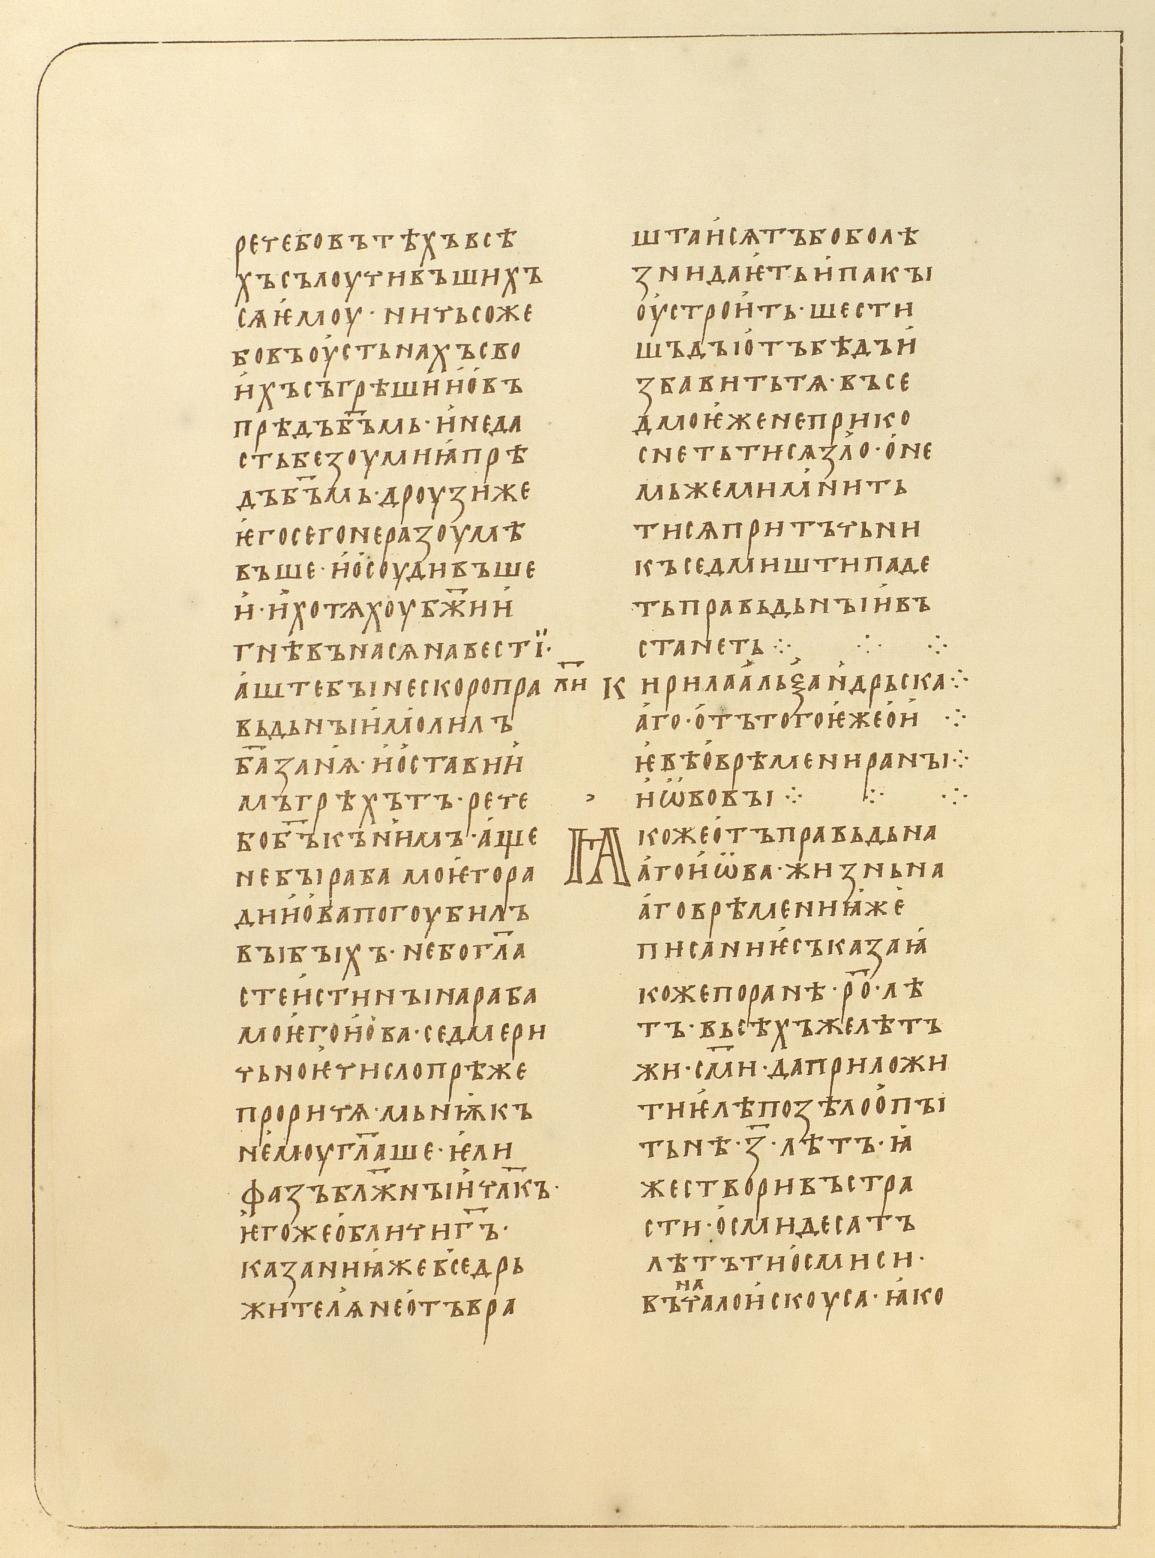 речебовътѣхъвсѣ
хъсълоучивъшихъ
сѧѥмоу· ничьсоже
бовъоустьнахъсво
ихъсъгрѣшииовъ
прѣдъб҃ъмь· инеда
стьбезоумиꙗпрѣ
дъб҃ъмь·дроузиже
ѥгосегонеразоумѣ
въше· иосоудивъше
и· ихотѧхоуб҃жии
гнѣвънасѧнавестї·
аштебꙑнескоропра
вьдьнꙑимолилъ
б҃азанѧ· иоставии
мъгрѣхътъ· рече
бобъ҃кънимъ· аще
небꙑрабамоѥгора
диіовапогоубилъ
вꙑбꙑхъ· небогл҃а
стеистинꙑнараба
моѥгоиова· седмери
чьноѥчислопрѣже
проричѧ· мьнѭкъ
немоугл҃аше· ѥли
фазъбл҃жнꙑичл҃къ·
ѥгожеобличиг҃ъ·
казаниꙗжевседрь
жителꙗнеотъвра
штаисѧтъбоболѣ
знидаѥтьипакꙑ
оустроить· шести
шъдꙑотъбѣдъи
збавитьтѧ· въсе
дмоѥженеприко
снетьтисѧзло· оне
мьжемимѣнить
тисѧпритъчьни
къседмиштипаде
тьправьдьнꙑивъ
станеть ⁘ ⁘ ⁘
л҃и кирилаальѯаидрьска⁘
аго· отътогоѥжеои ·⁘
ѥвѣоврѣмениранꙑ⁘
иѡвовꙑ ⁘ ⁘ ⁘
Ꙗкожеотъправьдьна
агоиѡва· жизньна
аговрѣмениꙗже
писаниѥсъказаꙗ
кожепоранѣ· р҃о· лѣ
тъ· вьсѣхъжелѣтъ
жи· см҃и· даприложи
тиѥлѣпозѣлоопꙑ
тьнѣ· з҃· лѣтъ· ꙗ
жестворивъстра
сти· осмидесатъ
лѣтътиосмиси·
въчанⷶлоискоуса· ꙗко